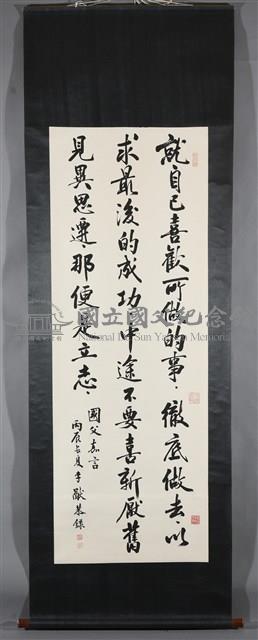 就自己喜歡所做的事徹底做去以
求最後的成功中途不要喜新厭舊
見異思遷那便是立志
國父嘉言
丙辰長夏李猷恭錄
國立國父紀念館
Sun Yat-sen Memorial